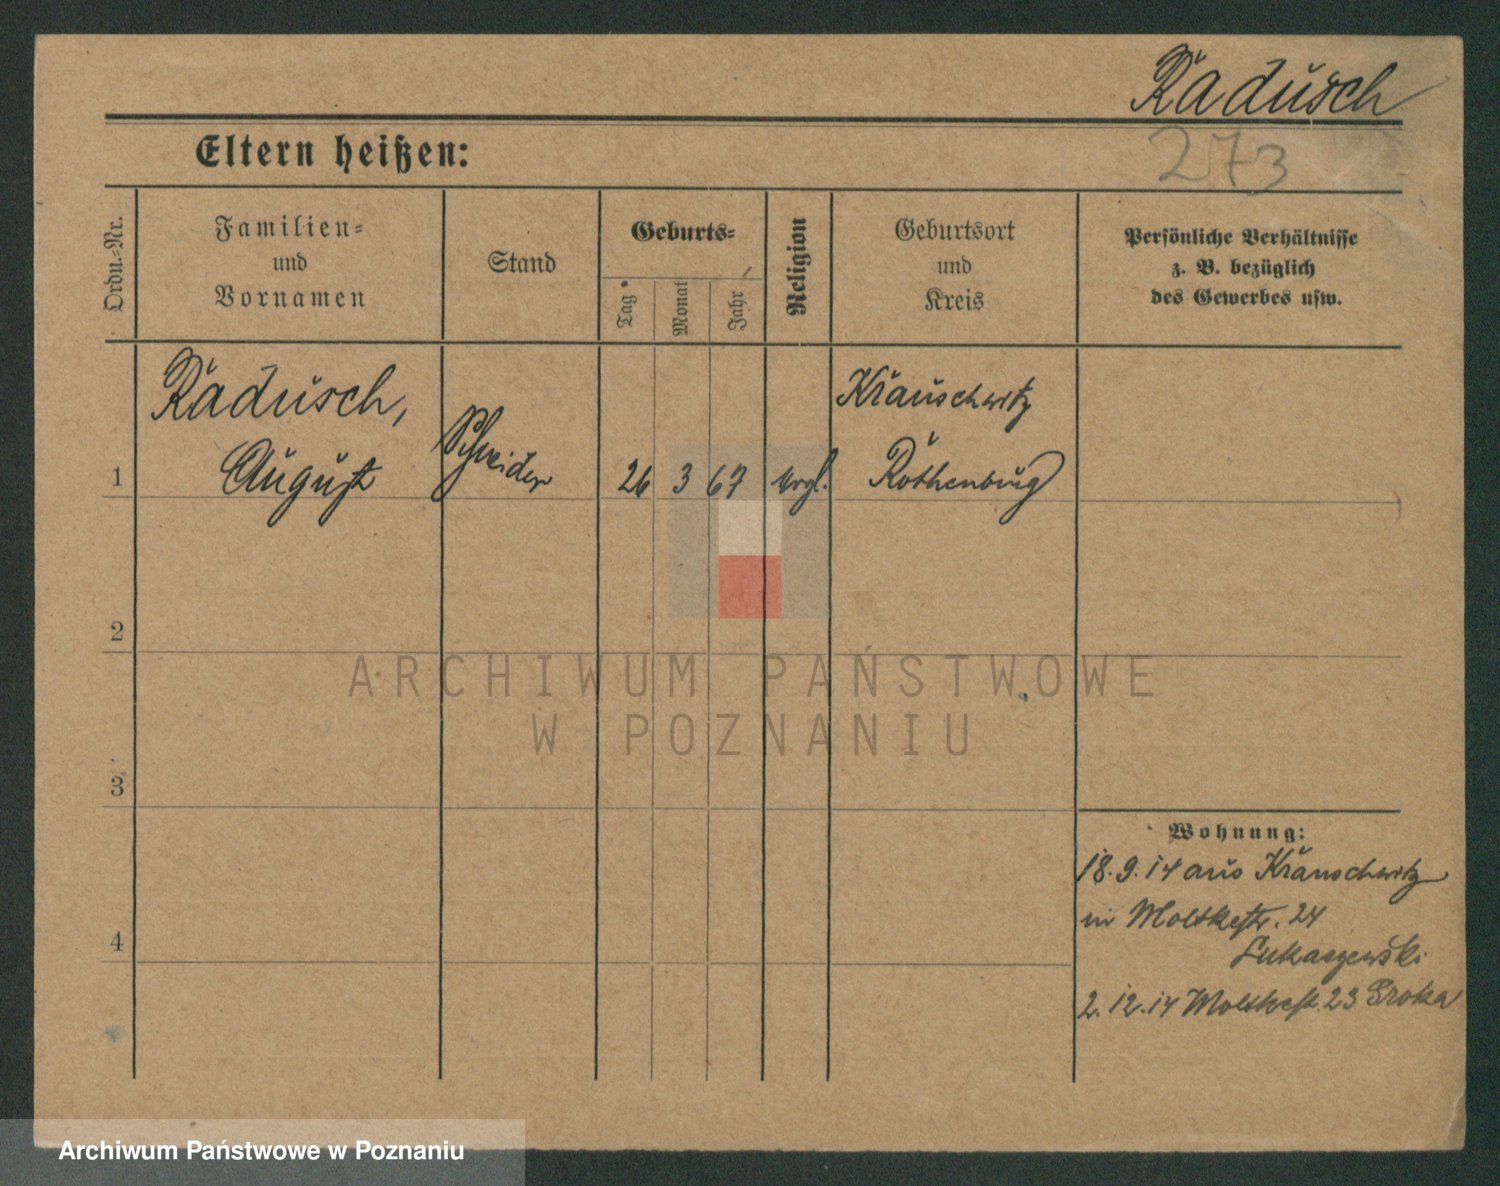 Radusch
273
Eltern heißen:
Ordn.-Nr.
Familien-
und
Vornamen
Stand
Geburts-
Tag
Monat
Jahr
Religion
Geburtsort
und
Kreis
Persönliche Verhältnisse
z. B. bezüglich
des Gewerbes usw.
1
Radusch,
August
Schneider
26 3 67
Krauschwitz
Rothenburg
2
3
4
Wohnung:
18.9.14 aus Krauschwitz
in Moltkestr. 24
Lukaszewski
2.12.14 Moltkestr. 23 Sroka
ARCHIWUM PAŃSTWOWE
W POZNANIU
Archiwum Państwowe w Poznaniu